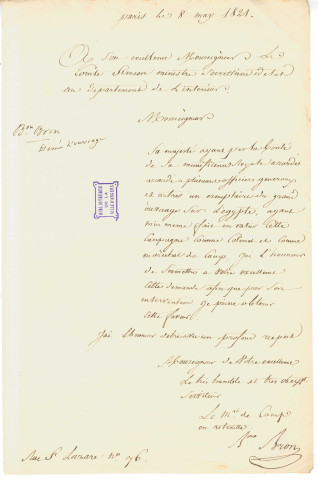 paris le 8 may 1821.
A Son excellence Monseigneur Le
Comte Simeon ministre Secretaire d'etat
au departement de l'interieur
Bon Bron
Monseigneur
Sa majesté ayant par les bonté
de sa munificence royale accordés
accordé a plusieurs officiers generaux
et autres un exemplaire du grand
ouvrage sur l'egypte, ayant
moi meme faite en entier cette
Campagne Comme Colonel et Comme
marechal de Camp, j'ai l'honneur
de Soumettre a Votre excellence
Cette demande afin que par son
intervention je puisse obtenir
cette faveur.
BIBLIOTHEQUE
DE LA
J'ai l'honneur d'etre avec un profond respect
Monseigneur de Votre excellence
Le tres humble et tres obeisst
Serviteur
Le Mal de Camp
en retraite
Bon Bron
Rue St Lazare no 76.